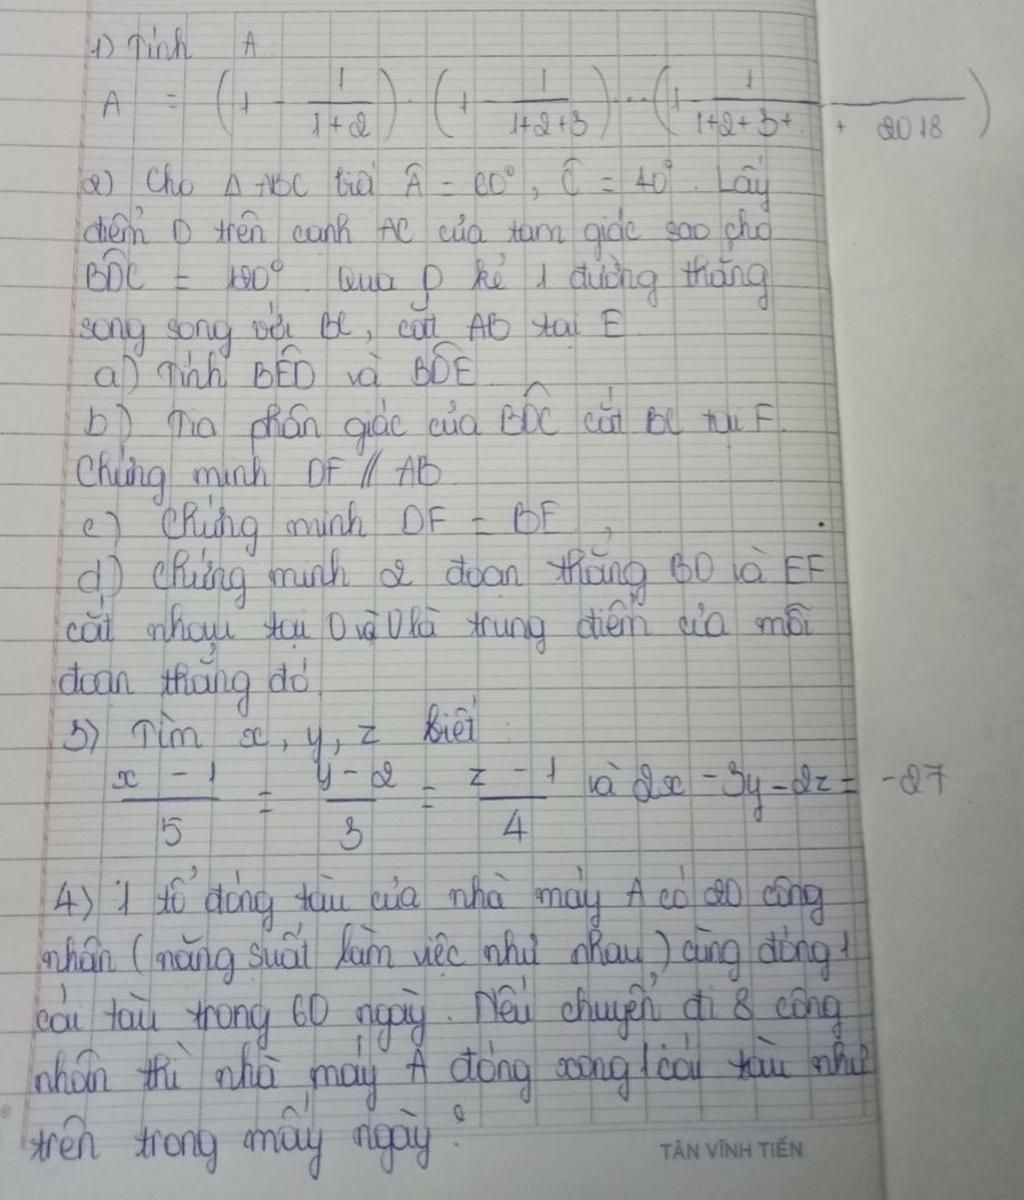 1) Tính A
A = (1 - 1/(1+2)) . (1 - 1/(1+2+3)) ... (1 - 1/(1+2+3+. + 2018))
2) Cho Δ ABC biết Â = 60°, Ĉ = 40°. Lấy
điểm D trên cạnh AC của tam giác sao cho
BDC = 120°. Qua D kẻ 1 đường thẳng
song song với BC, cắt AB tại E
a) Tính BÊD và BDE
b) Tia phân giác của BDC cắt BC tại F.
Chứng minh DF // AB
c) Chứng minh DF = BE
d) Chứng minh 2 đoạn thẳng BD và EF
cắt nhau tại O và O là trung điểm của mỗi
đoạn thẳng đó
3) Tìm x, y, z biết
(x - 1)/5 = (y - 2)/3 = (z - 1)/4 và 2x - 3y - 2z = -27
4) 1 tổ đóng tàu của nhà máy A có 20 công
nhân (năng suất làm việc như nhau) cùng đóng 1
cái tàu trong 60 ngày. Nếu chuyển đi 8 công
nhân thì nhà máy A đóng xong 1 cái tàu như
trên trong mấy ngày?
TÂN VĨNH TIẾN